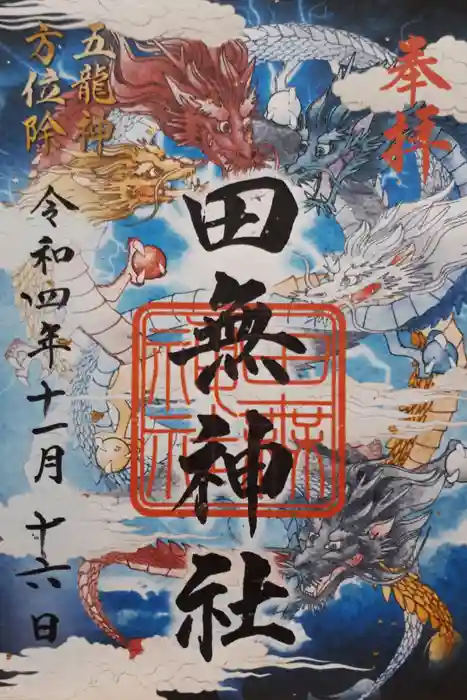 奉拝
田無神社
五龍神
方位除
令和四年十一月十六日
田無
神社